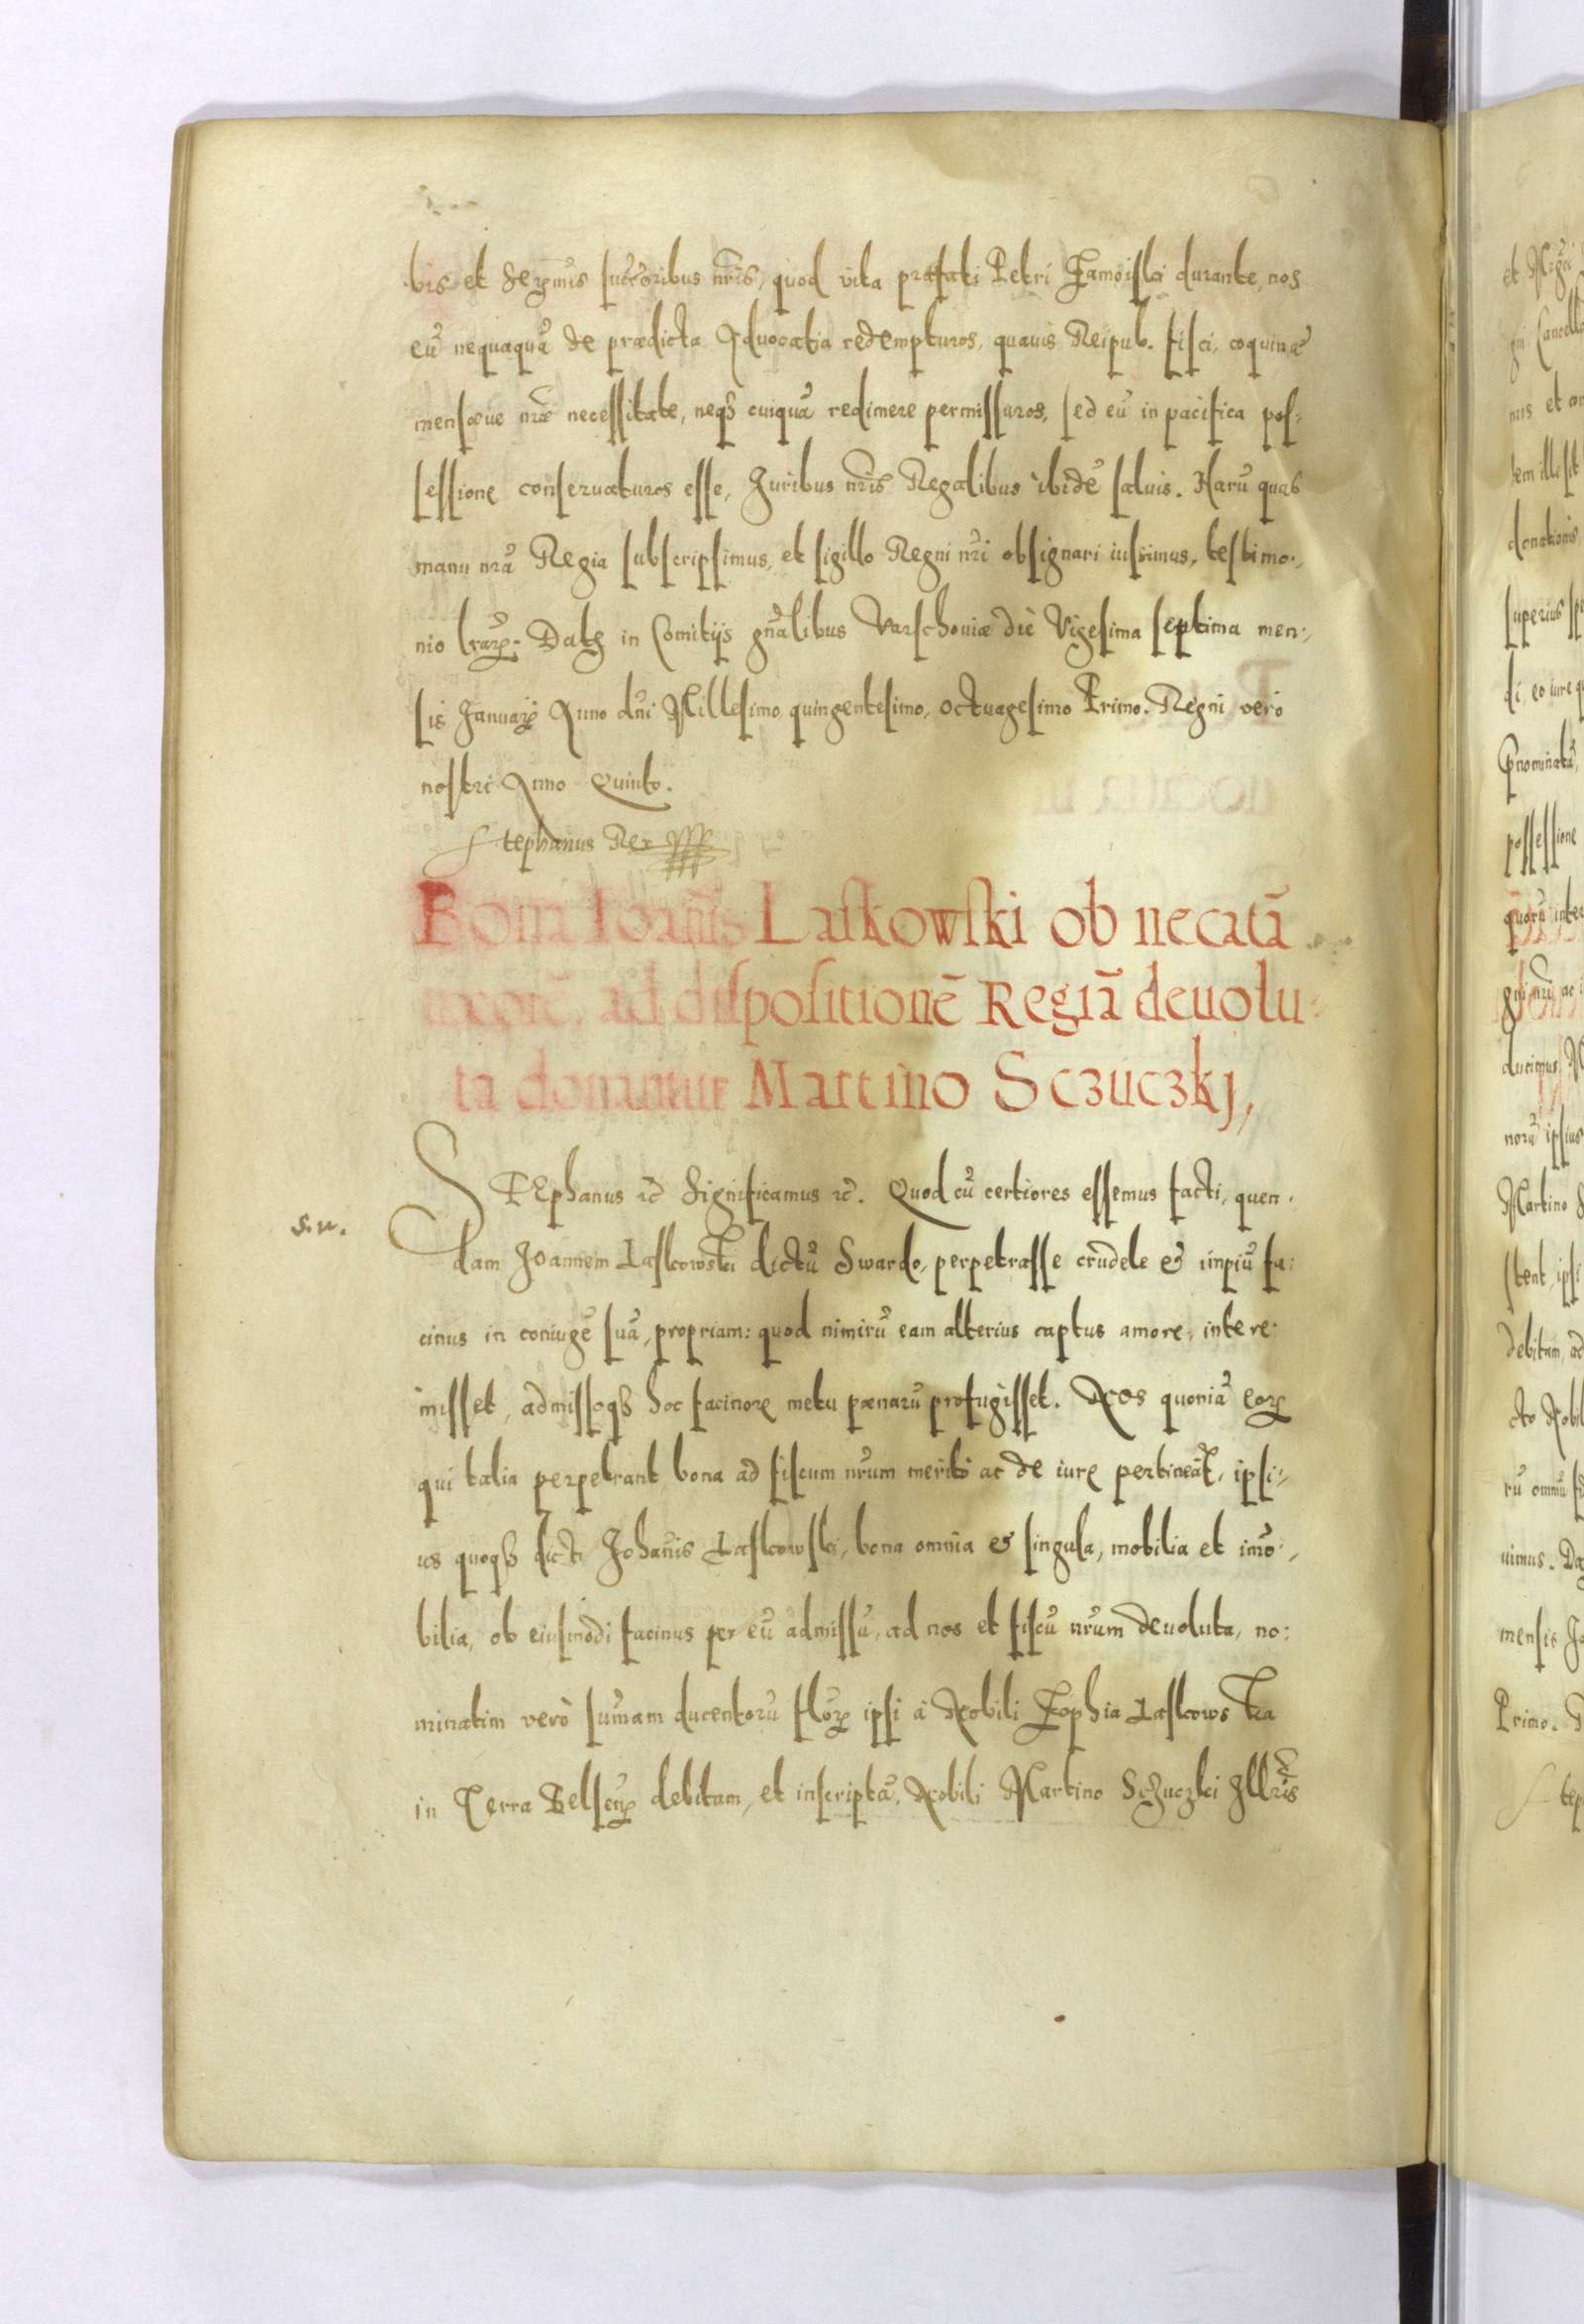 bis et Serenmis succoribus nris, quod vita præfati Petri Zamoiski durante, nos
eũ nequaquã de prædicta Aduocatia redempturos, quauis Reipub. fisci, coquinæ
mensæue nræ necessitate, neqȝ cuiquã redimere permissuros, sed eũ in pacifica pos-
sessione conseruaturos esse, Juribus nris Regalibus ibidẽ saluis. Harũ quas
manu nrã Regia subscripsimus, et sigillo Regni nri obsignari iussimus, testimo-
nio lrarꝝ. Datę in Comitijs gñalibus Varschouiæ die Vigesima septima men-
sis Januarꝝ Anno dni Millesimo, quingentesimo, octuagesimo Primo. Regni vero
nostri Anno Quinto.
Stephanus Rex
Bona Ioannis Laskowski ob necatã
uxorẽ, ad dispositionẽ Regiã deuolu-
ta donantur Martino Sczuczkj,
STEphanus ꝛc Significamus ꝛc. Quod cũ certiores essemus facti, quen-
s.n.
dam Joannem Laskowski dictũ Swardo, perpetrasse crudele & impiũ fa-
cinus in coniugẽ suã, propriam: quod nimirũ eam alterius captus amore, intere-
misset, admissoqȝ hoc facinore metu pœnarũ profugisset. Nos quoniã eorꝝ
qui talia perpetrant bona ad fiscum nrum merito ac de iure pertineãt, ipsi-
us quoqȝ dicti Johanis Laskowski, bona omnia & singula, mobilia et imo-
bilia, ob eiusmodi facinus per eũ admissũ, ad nos et fiscũ nrum deuoluta, no-
minatim verò sumam ducentorũ florꝝ ipsi à Nobili Zophia Laskowska
in Terra Belsenꝝ debitam, et inscriptã, Nobili Martino Sczuczki Illris